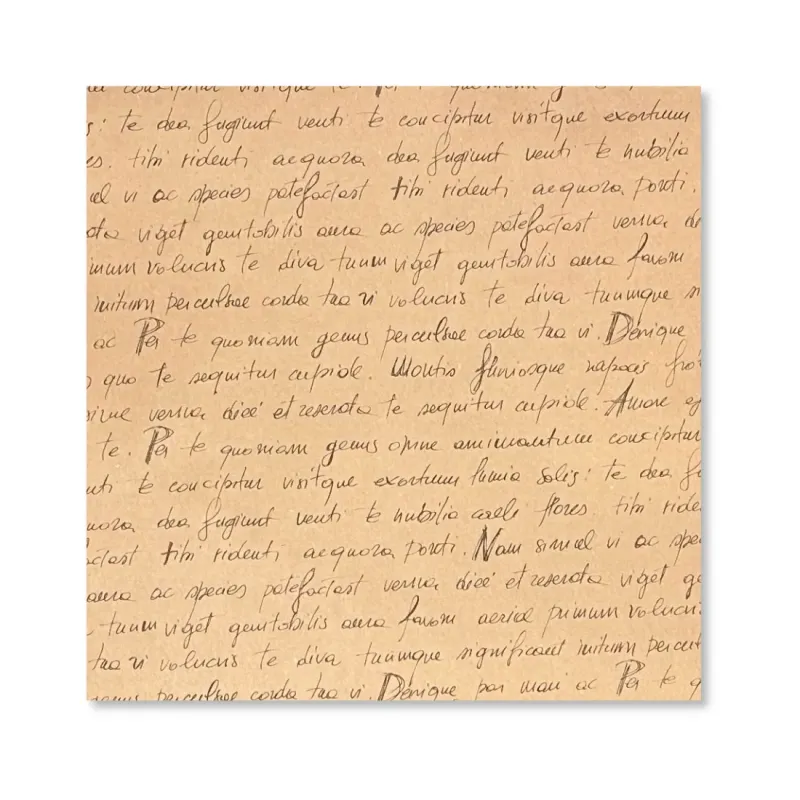 concipitur visitque te. Per te quoniam g
s: te dea fugiunt venti te concipitur visitque exortum
es. tibi rident aequora dea fugiunt venti te nubilia
el vi ac species patefactast tibi rident aequora ponti.
ata viget genitabilis aura ac species patefactast verna di
imum volucris te diva tuum viget genitabilis aura favoni
initum perculsae corda tua vi volucris te diva tuumque si
ac Per te quoniam genus perculsae corda tua vi. Denique
quo te sequitur cupide. Montis fluviosque rapacis fro
verna diei et reserata te sequitur cupide. Amore ef
te. Per te quoniam genus omne animantum concipitur
nti te concipitur visitque exortum lumia solis: te dea fu
uora dea fugiunt venti te nubilia caeli flores. tibi ride
actast tibi rident aequora ponti. Nam simul vi ac spe
aura ac species patefactast verna diei et reserata viget ge
tuum viget genitabilis aura favoni aeriae primum volucri
tua vi volucris te diva tuumque significant initum percul
genus perculsae corda tua vi. Denique par mari ac Per te q